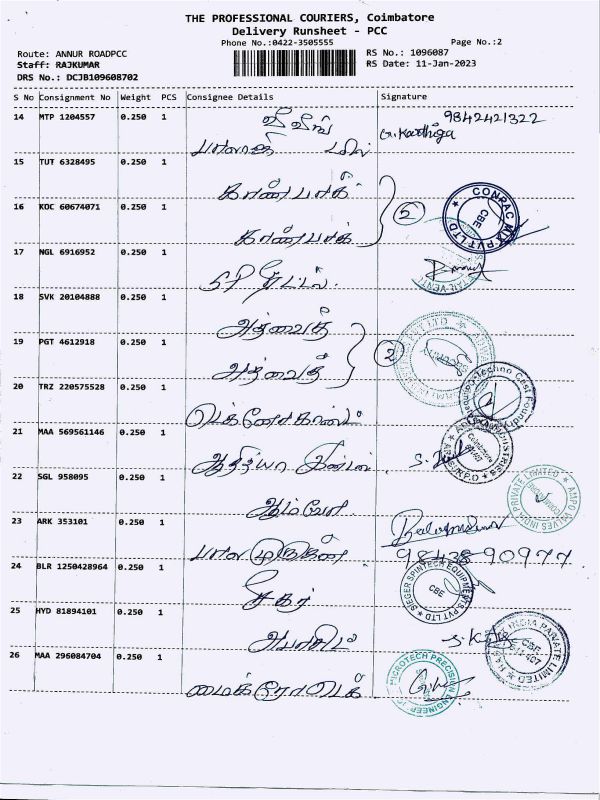 THE PROFESSIONAL COURIERS, Coimbatore
Delivery Runsheet - PCC
Phone No.:0422-3505555
Page No.:2
Route: ANNUR ROADPCC
RS No.: 1096087
Staff: RAJKUMAR
RS Date: 11-Jan-2023
DRS No.: DCJB109608702
S No Consignment No Weight PCS Consignee Details Signature
14 MTP 1204557 0.250 1 9842421322
G.Karthiga
15 TUT 6328495 0.250 1
காண்பாக்
16 KOC 60674071 0.250 1 5 CONPAC MIX PVT LTD CBE
காண்பாக்
17 NGL 6916952 0.250 1
18 SVK 20104888 0.250 1
அத்வைத்
19 PGT 4612918 0.250 1 2
அத்வைத்
20 TRZ 220575528 0.250 1
டெக்னோகாஸ்ட்
21 MAA 569561146 0.250 1
22 SGL 958095 0.250 1 AMPO VALVES INDIA PRIVATE LIMITED
ஆம்போ
23 ARK 353101 0.250 1
பாலமுருகன் 98438-90977
24 BLR 1250428964 0.250 1 SIEGER SPINTECH EQUIPMENTS PVT LTD CBE
சீகர்
25 HYD 81894101 0.250 1 INDIA PRIVATE LIMITED CBE 641-407
26 MAA 296084704 0.250 1 MICROTECH PRECISION ENGINEER
மைக்ரோடெக்